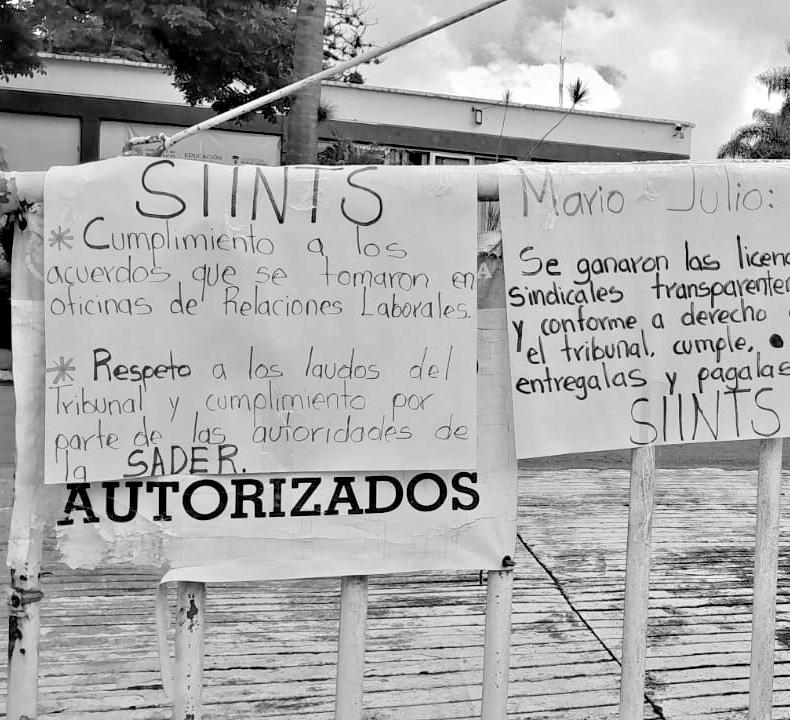 EDUCACIÓN
SIINTS
* Cumplimiento a los
acuerdos que se tomaron en
oficinas de Relaciones Laborales.
* Respeto a los laudos del
Tribunal y cumplimiento por
parte de las autoridades de
la SADER.
AUTORIZADOS
Mario Julio:
Se ganaron las licenc
sindicales transparente
y conforme a derecho
el tribunal, cumple,
entregalas y pagalas
SIINTS